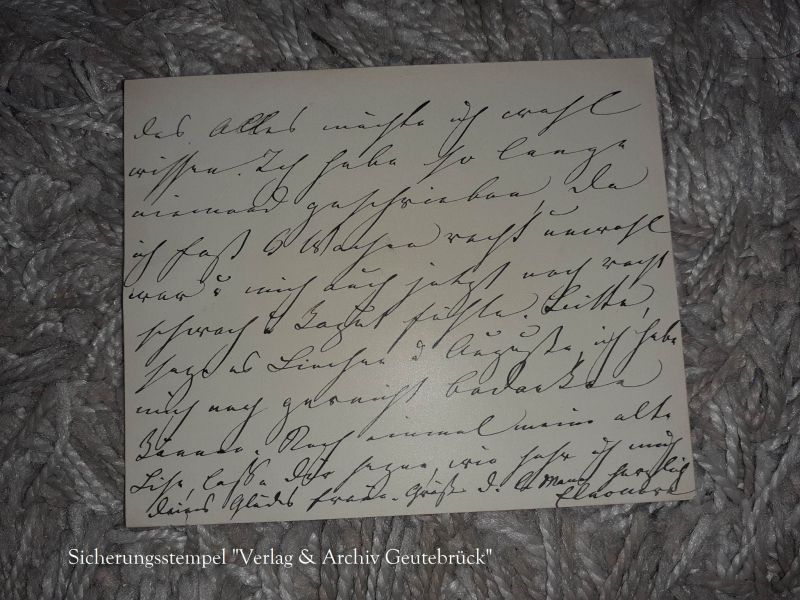 das Alles möchte ich wohl
wissen. Ich habe so lange
niemand geschrieben, da
ich fast 6 Wochen recht unwohl
war u mich auch jetzt noch recht
schwach u kaput fühle. Bitte,
sage es Linchen u Auguste, ich habe
mich noch garnicht bedanken
können. Noch einmal meine alte
Lise, lasse dir sagen, wie sehr ich mich
Deines Glückes freue. Grüße d. l. Mann herzlich
Eleonore
Sicherungsstempel "Verlag & Archiv Geutebrück"